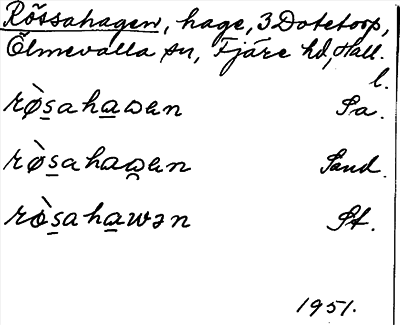 Rössahagen, hage, 3 Dotetorp,
Ölmevalla sn, Fjäre hd, Hall.
l.
rø̀s̲aha̲wen Sa.
rø̀s̲aha̲wen Sand.
rø̀s̲aha̲wən St.
1951.